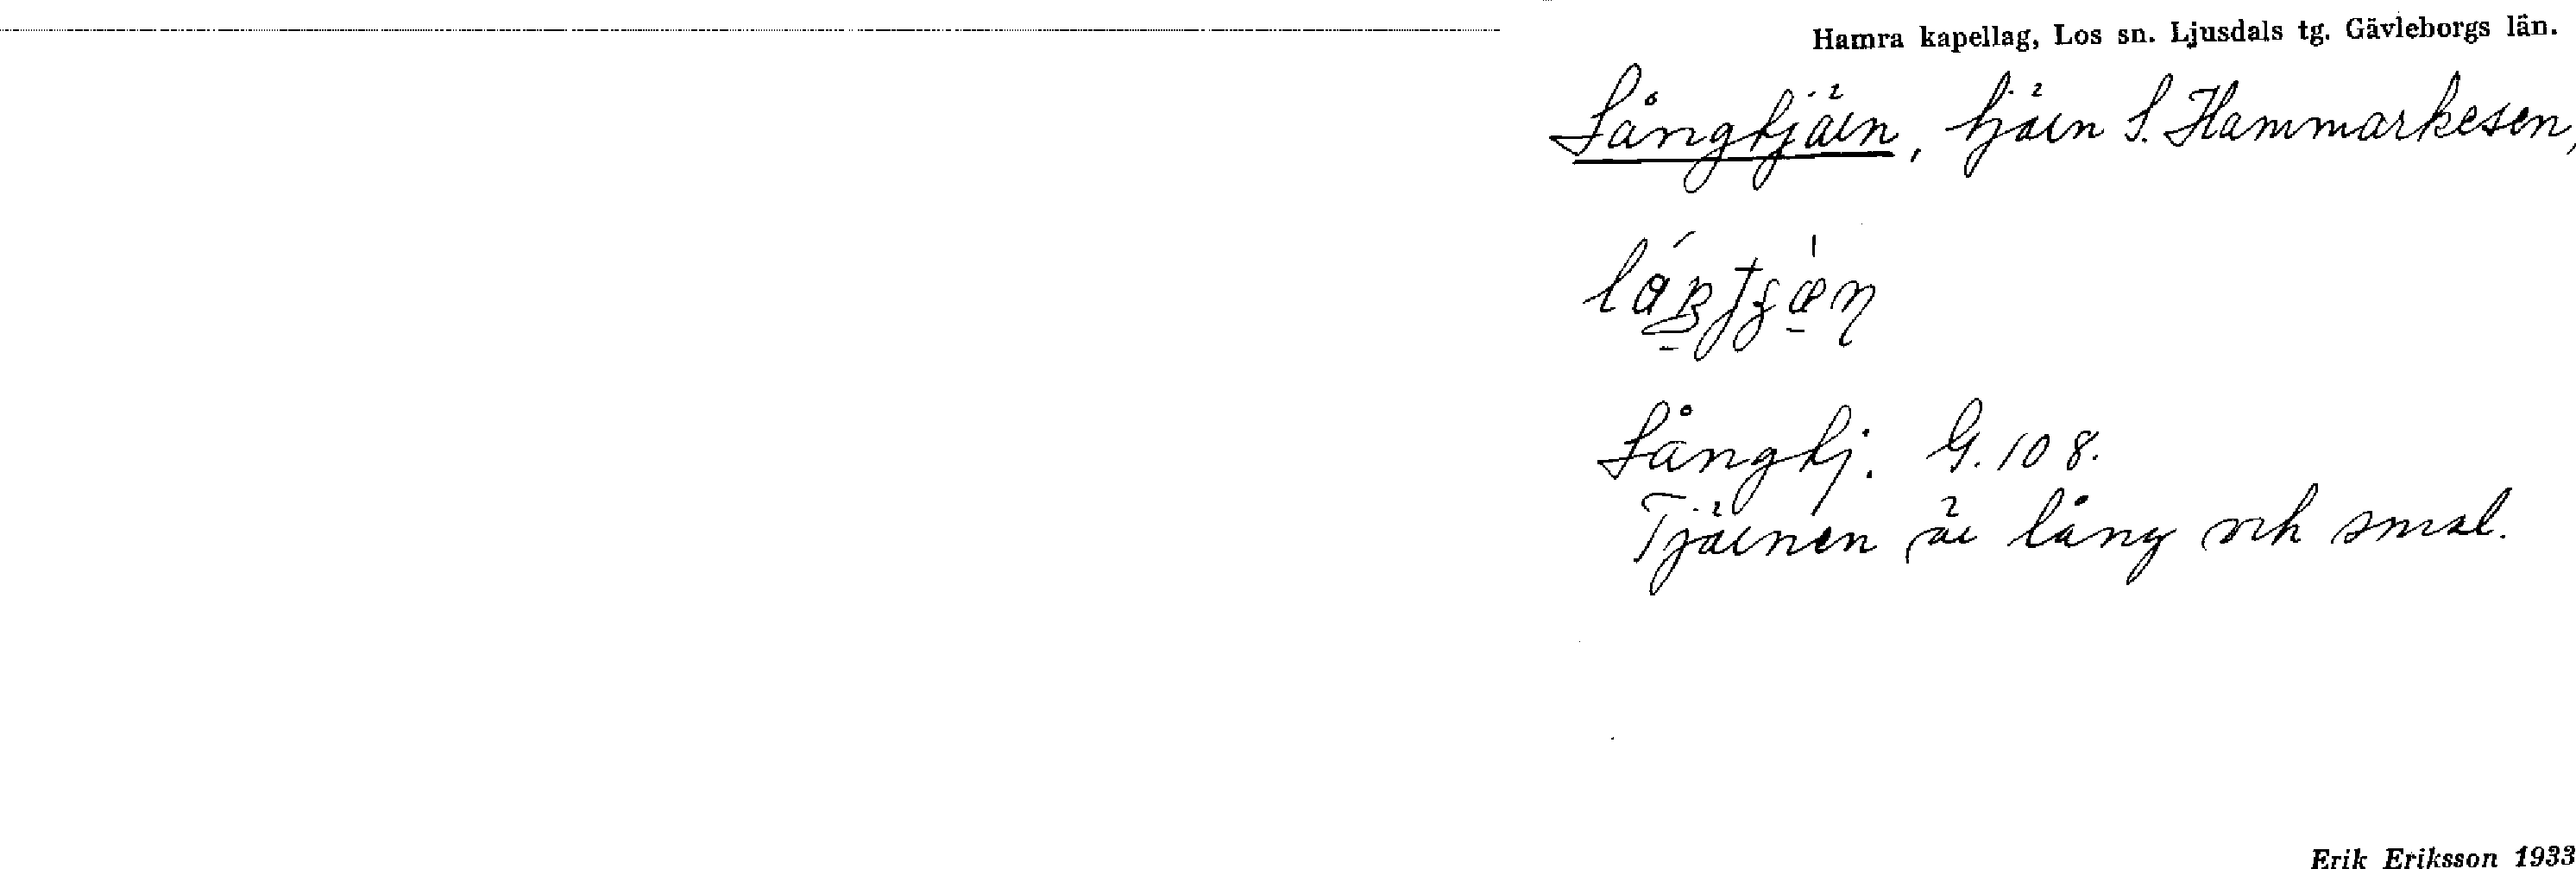 Hamra kapellag, Los sn. Ljusdals tg. Gävleborgs län.
Långtjärn, tjärn S. Hammarkesen,
Långtj. G. 108.
Tjärnen är lång och smal.
Erik Eriksson 1933